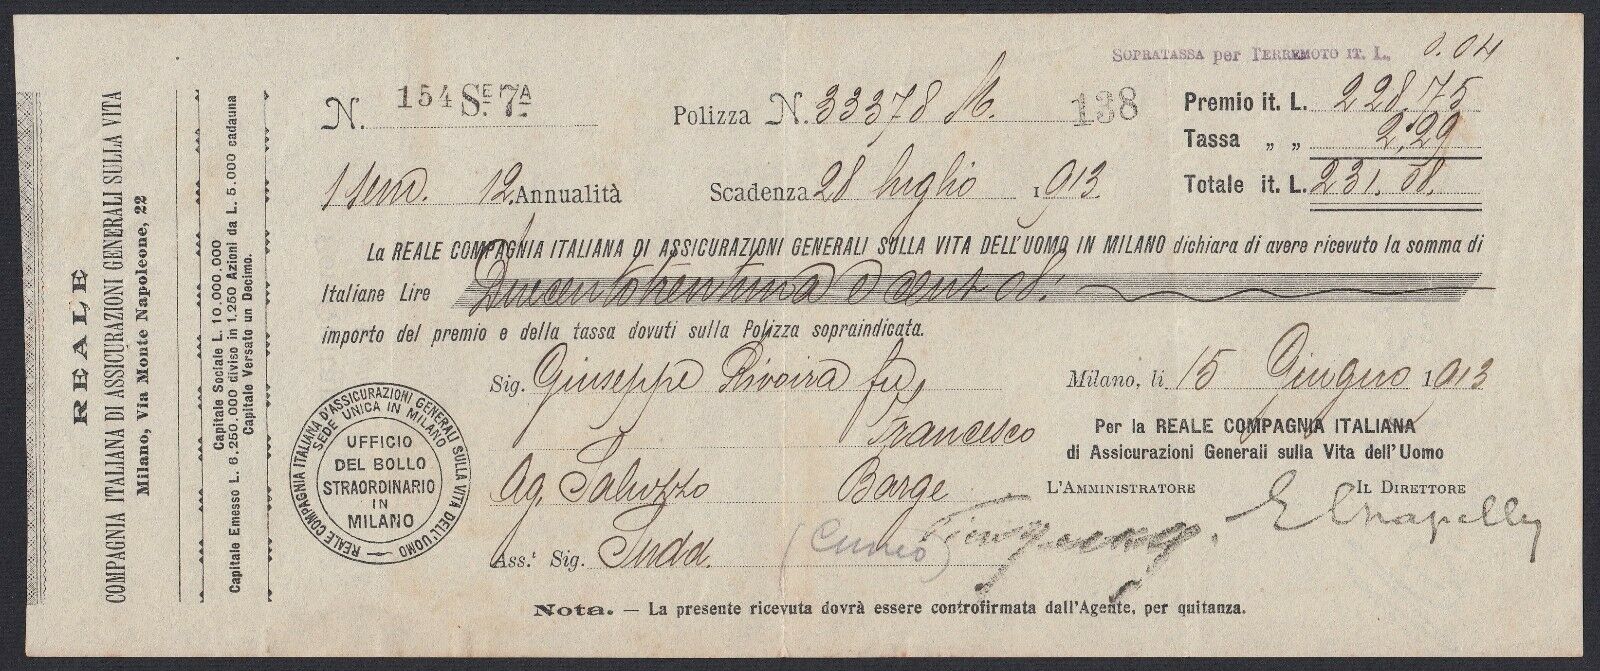 REALE
COMPAGNIA ITALIANA DI ASSICURAZIONI GENERALI SULLA VITA
Milano, Via Monte Napoleone, 22
Capitale Sociale L. 10,000,000
Capitale Emesso L. 6,250,000 diviso in 1,250 Azioni da L. 5,000 cadauna
Capitale Versato un Decimo.
SOPRATASSA per TERREMOTO IT. L. 0.04
N. 154 SE. 7A Polizza N. 33378 M. 138 Premio it. L. 228.75
Tassa „ „ 2.29
1 sem. 12. Annualità Scadenza 28 luglio 1913 Totale it. L. 231.08.
La REALE COMPAGNIA ITALIANA DI ASSICURAZIONI GENERALI SULLA VITA DELL'UOMO IN MILANO dichiara di avere ricevuto la somma di
Italiane Lire Duecentotrentuna e cent 08.
importo del premio e della tassa dovuti sulla Polizza sopraindicata.
Sig. Giuseppe Rivoira fu Milano, li 15 Giugno 1913
Francesco
Per la REALE COMPAGNIA ITALIANA
di Assicurazioni Generali sulla Vita dell'Uomo
Ag. Saluzzo Barge L'AMMINISTRATORE IL DIRETTORE
(Cuneo)
Ass.t Sig. Sudd.
REALE COMPAGNIA ITALIANA D'ASSICURAZIONI GENERALI SULLA VITA DELL'UOMO
SEDE UNICA IN MILANO
UFFICIO
DEL BOLLO
STRAORDINARIO
IN
MILANO
Nota. — La presente ricevuta dovrà essere controfirmata dall'Agente, per quitanza.